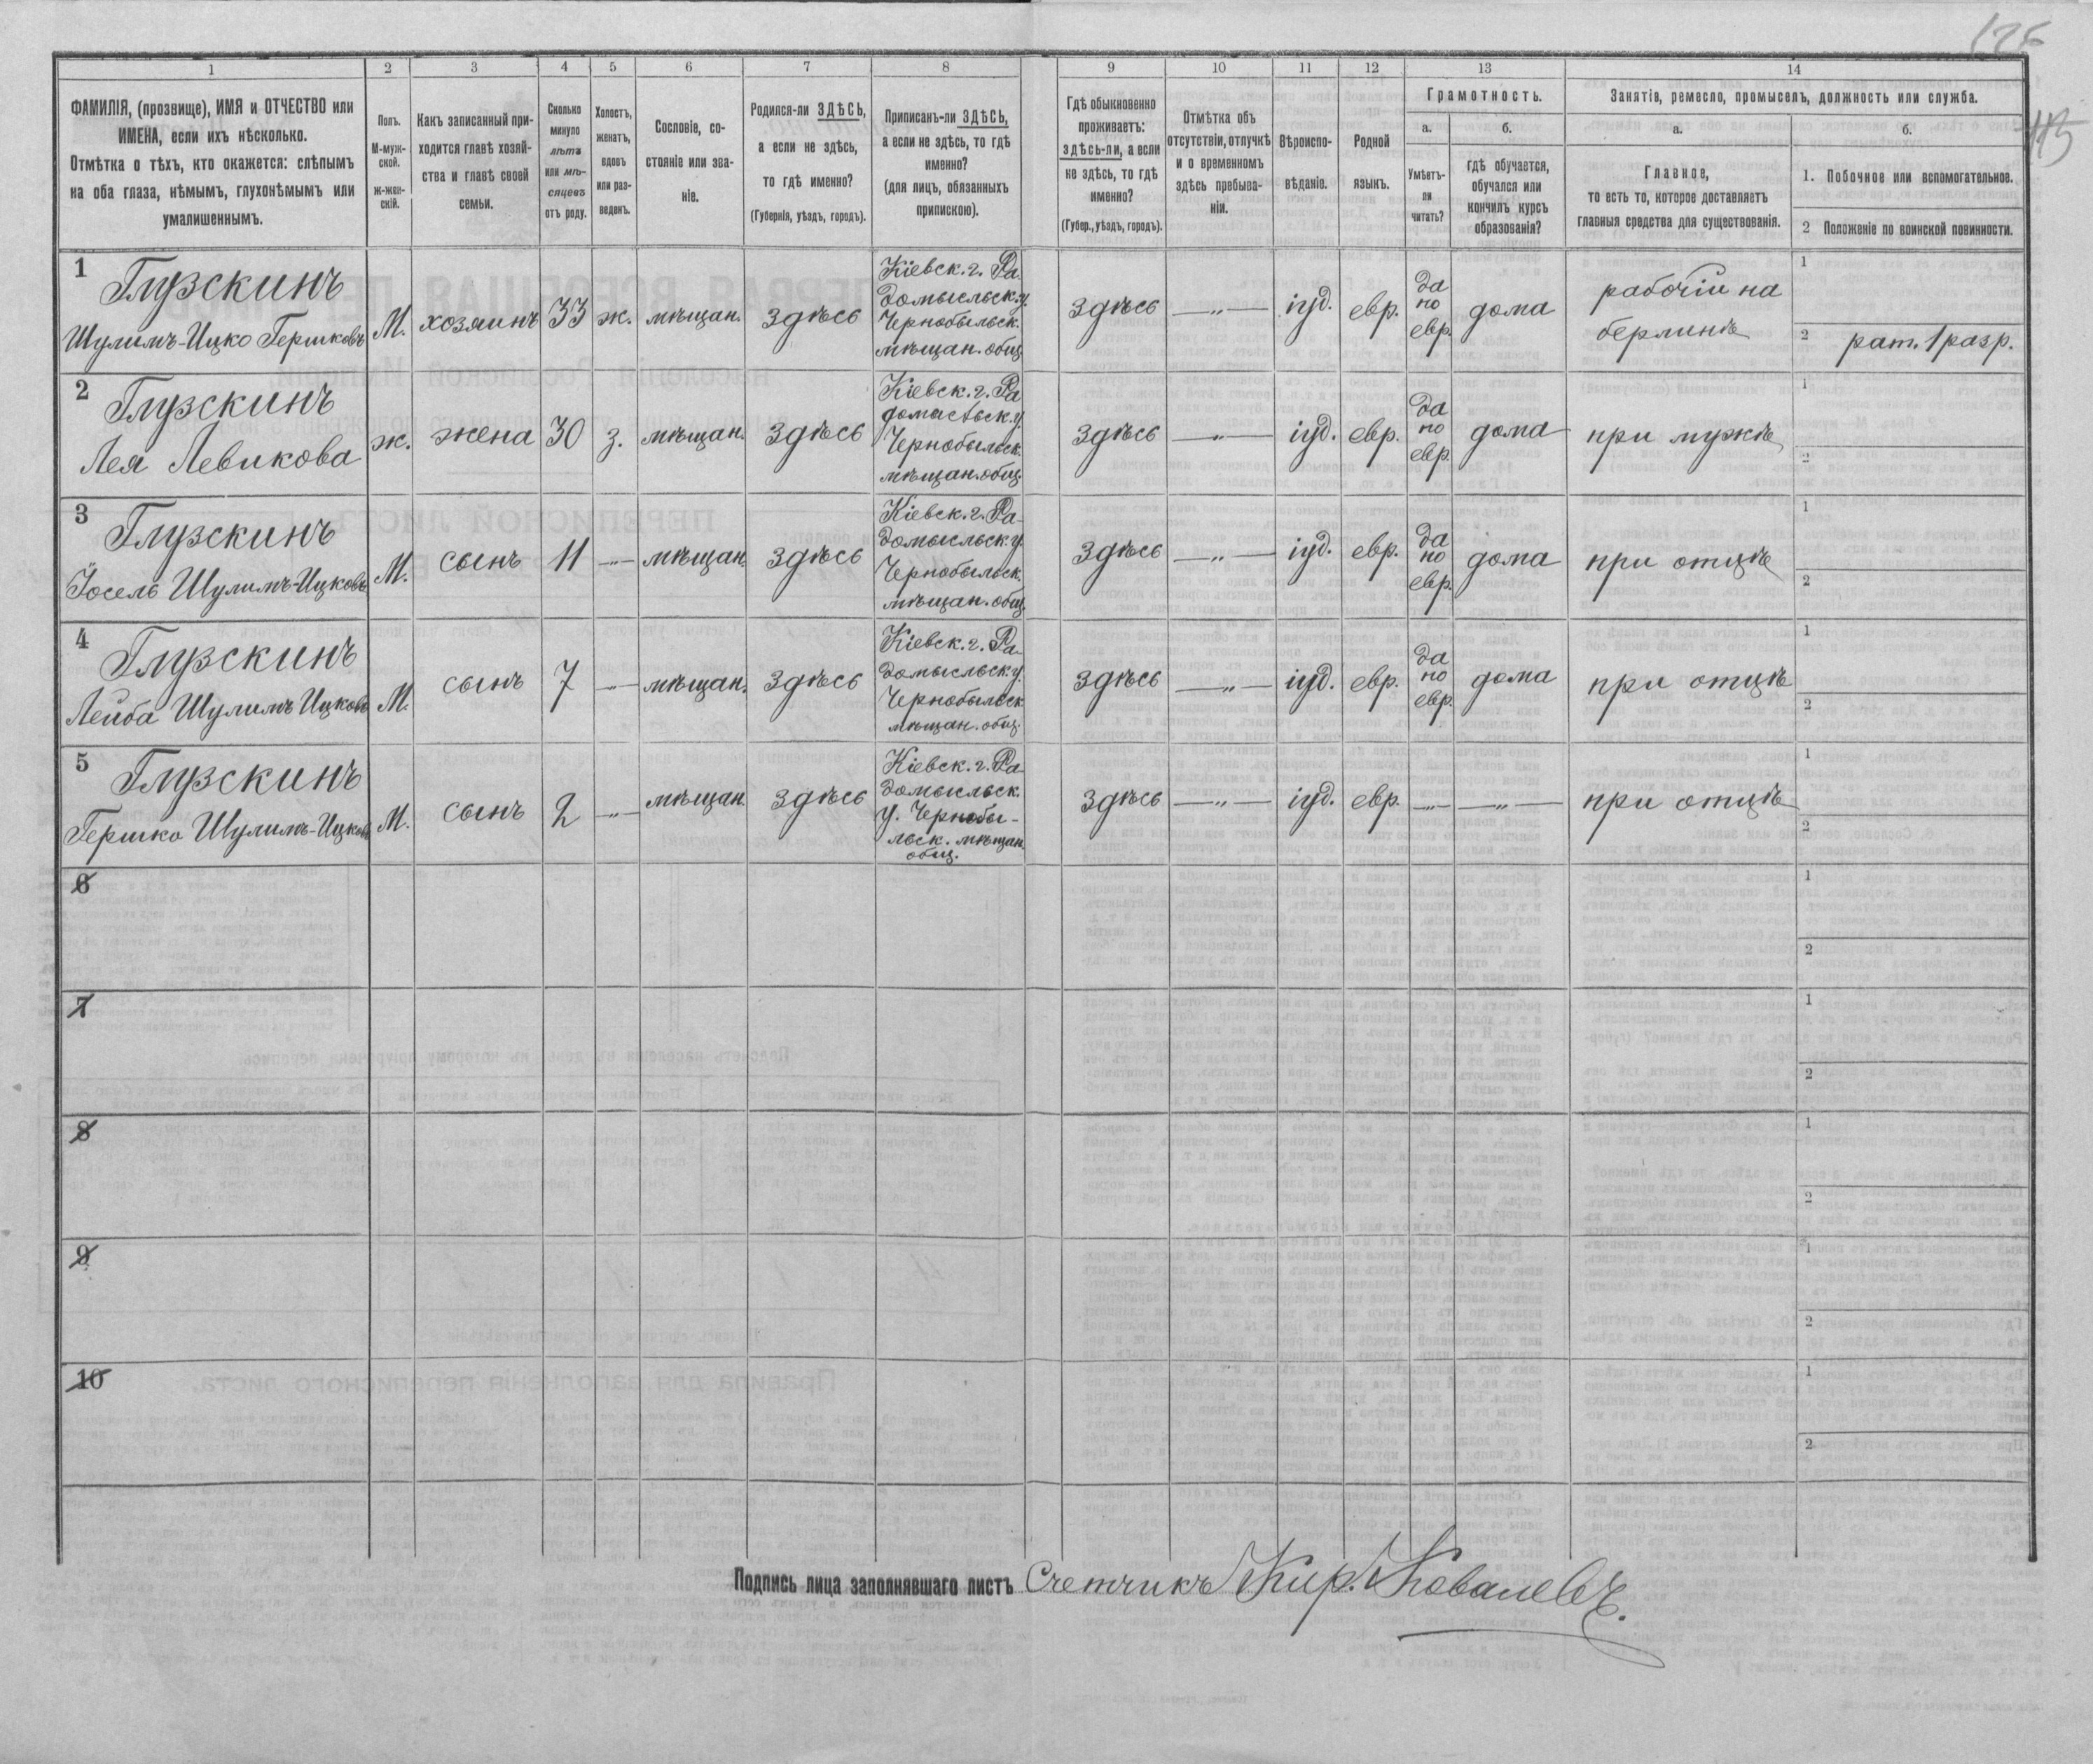 126
113
1 2 3 4 5 6 7 8 9 10 11 12 13 14
ФАМИЛІЯ, (прозвище), ИМЯ и ОТЧЕСТВО или
ИМЕНА, если ихъ нѣсколько.
Отмѣтка о тѣхъ, кто окажется: слѣпымъ
на оба глаза, нѣмымъ, глухонѣмымъ или
умалишеннымъ.
Полъ.
М-муж-
ской.
ж-жен-
скій.
Какъ записанный при-
ходится главѣ хозяй-
ства и главѣ своей
семьи.
Сколько
минуло
лѣтъ
или мѣ-
сяцевъ
отъ роду.
Холостъ,
женатъ,
вдовъ
или раз-
веденъ.
Сословіе, со-
стояніе или зва-
ніе.
Родился-ли ЗДѢСЬ,
а если не здѣсь,
то гдѣ именно?
(Губернія, уѣздъ, городъ).
Приписанъ-ли ЗДѢСЬ,
а если не здѣсь, то гдѣ
именно?
(для лицъ, обязанныхъ
припискою).
Гдѣ обыкновенно
проживаетъ:
здѣсь-ли, а если
не здѣсь, то гдѣ
именно?
(Губер., уѣздъ, городъ).
Отмѣтка объ
отсутствіи, отлучкѣ
и о временномъ
здѣсь пребыва-
ніи.
Вѣроиспо-
вѣданіе.
Родной
языкъ.
Грамотность.
а.
Умѣетъ-
ли
читать?
б.
гдѣ обучается,
обучался или
кончилъ курсъ
образованія?
Занятіе, ремесло, промыселъ, должность или служба.
а.
Главное,
то есть то, которое доставляетъ
главныя средства для существованія.
б.
1. Побочное или вспомогательное.
2 Положеніе по воинской повинности.
1
Глузскинъ
Шулимъ-Ицко Гершковъ
М.
хозяинъ
33
ж.
мѣщан.
здѣсь
Кіевск. г. Ра-
домысльск. у.
Чернобыльск.
мѣщан. общ.
здѣсь
—„—
іуд.
евр.
да
по
евр.
дома
рабочій на
берлинѣ
1
2 рат. 1 разр.
2
Глузскинъ
Лея Левикова
ж.
жена
30
з.
мѣщан.
здѣсь
Кіевск. г. Ра
домысльск. у.
Чернобыльск.
мѣщан. общ.
здѣсь
—„—
іуд.
евр.
да
по
евр.
дома
при мужѣ
1
2
3
Глузскинъ
Іосель Шулимъ-Ицковъ
М.
сынъ
11
—„—
мѣщан.
здѣсь
Кіевск. г. Ра-
домысльск. у.
Чернобыльск.
мѣщан. общ.
здѣсь
—„—
іуд.
евр.
да
по
евр.
дома
при отцѣ
1
2
4
Глузскинъ
Лейба Шулимъ Ицковъ
М.
сынъ
7
—„—
мѣщан.
здѣсь
Кіевск. г. Ра-
домысльск. у.
Чернобыльск
мѣщан. общ.
здѣсь
—„—
іуд.
евр.
да
по
евр.
дома
при отцѣ
1
2
5
Глузскинъ
Гершко Шулимъ-Ицковъ
М.
сынъ
2
—„—
мѣщан.
здѣсь
Кіевск. г. Ра-
домысльск.
у. Чернобы-
льск. мѣщан.
общ.
здѣсь
—„—
іуд.
евр.
—„—
—„—
при отцѣ
1
2
6
1
2
7
1
2
8
1
2
9
1
2
10
1
2
Подпись лица заполнявшаго листъ Счетчикъ Кир. Ковалевъ.